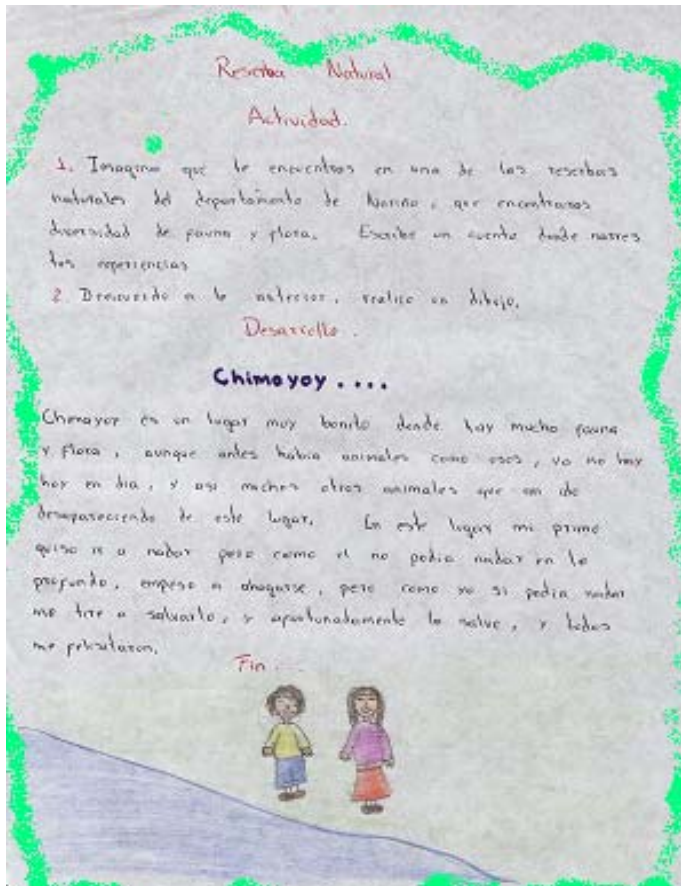 Reserba Natural
Actividad.
1. Imagina que te encuentras en una de las reserbas
naturales del departamento de Nariño, que encontraras
diversidad de fauna y flora. Escribe un cuento donde narres
tus experiencias
2. Deacuerdo a lo anterior, realice un dibujo.
Desarrollo.
Chimayoy ....
Chimayoy es un lugar muy bonito donde hay mucha fauna
y flora, aunque antes habia animales como osos, ya no hay
hoy en dia, y asi muchos otros animales que an ido
desapareciendo de este lugar. En este lugar mi primo
quiso ir a nadar pero como el no podia nadar en lo
profundo, empeso a ahogarse, pero como yo si podia nadar
me tire a salvarlo, y afortunadamente lo salve, y todos
me felisitaron.
Fin ...